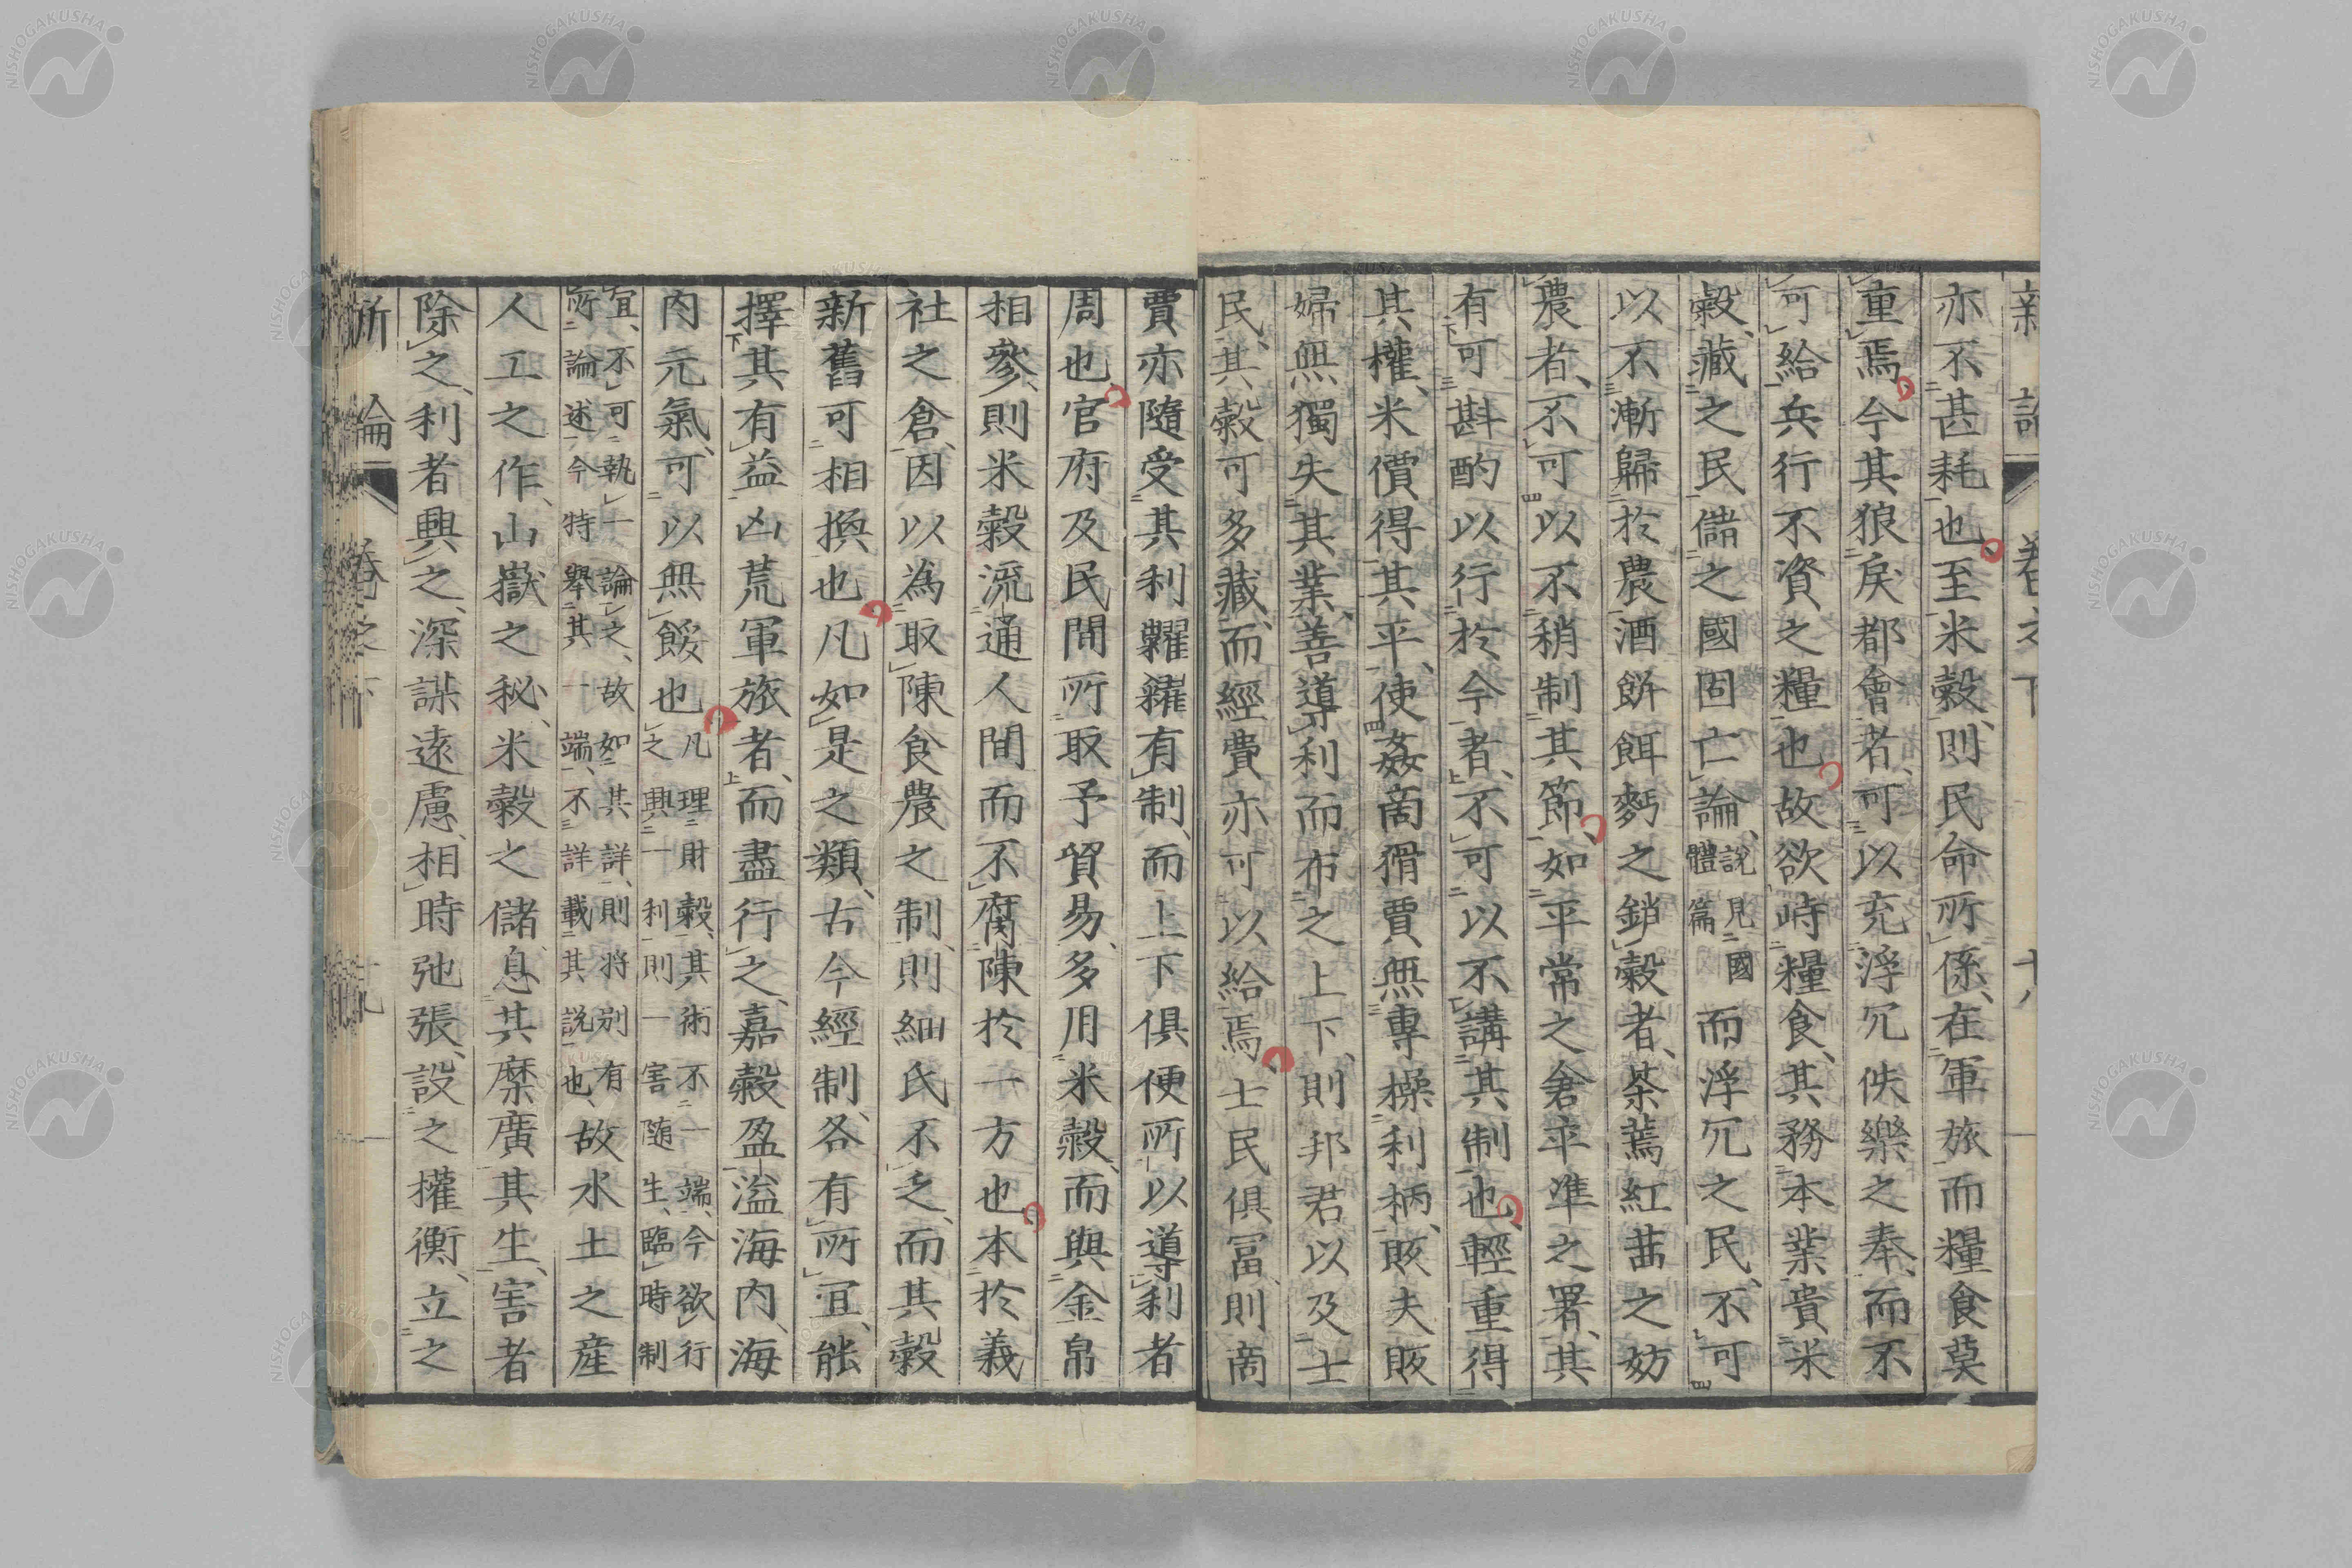 新論 卷之下 十八
亦不甚耗也至米穀則民命所係在軍旅而糧食莫
重焉今其狼戾都會者可以充浮冗佚樂之奉而不
可給兵行不資之糧也故欲峙糧食其務本業貴米
穀藏之民儲之國固亡論說見國體篇而浮冗之民不可
以不漸歸於農酒餅餌麪之銷穀者茶蔫紅茜之妨
農者不可以不稍制其節如平常之倉平準之署其
有可斟酌以行於今者不可以不講其制也輕重得
其權米價得其平使姦商猾賈無專操利柄販夫販
婦無獨失其業善導利而布之上下則邦君以及士
民其穀可多藏而經費亦可以給焉士民俱冨則商
賈亦隨受其利糶糴有制而上下俱便所以導利者
周也官府及民間所取予貿易多用米穀而與金帛
相參則米穀流通人間而不腐陳於一方也本於義
社之倉因以為取陳食農之制則細民不乏而其穀
新舊可相換也凡如是之類古今經制各有所宜能
擇其有益凶荒軍旅者而盡行之嘉穀盈溢海內海
內元氣可以無餒也凡理財穀其術不一端今欲行之興一利則一害隨生臨時制
宜不可執一論之故如其詳則將別有所論述今特舉其一端不詳載其說也故水土之産
人工之作山嶽之秘米穀之儲息其糜廣其生害者
除之利者興之深謀遠慮相時弛張設之權衡立之
新論 卷之下 十九